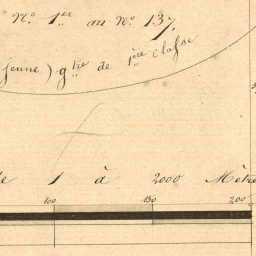 N.o 1.er au N.o 137,
(jeune) g.tre de 1ère classe
le 1 à 2000 Mètre
100 150 200